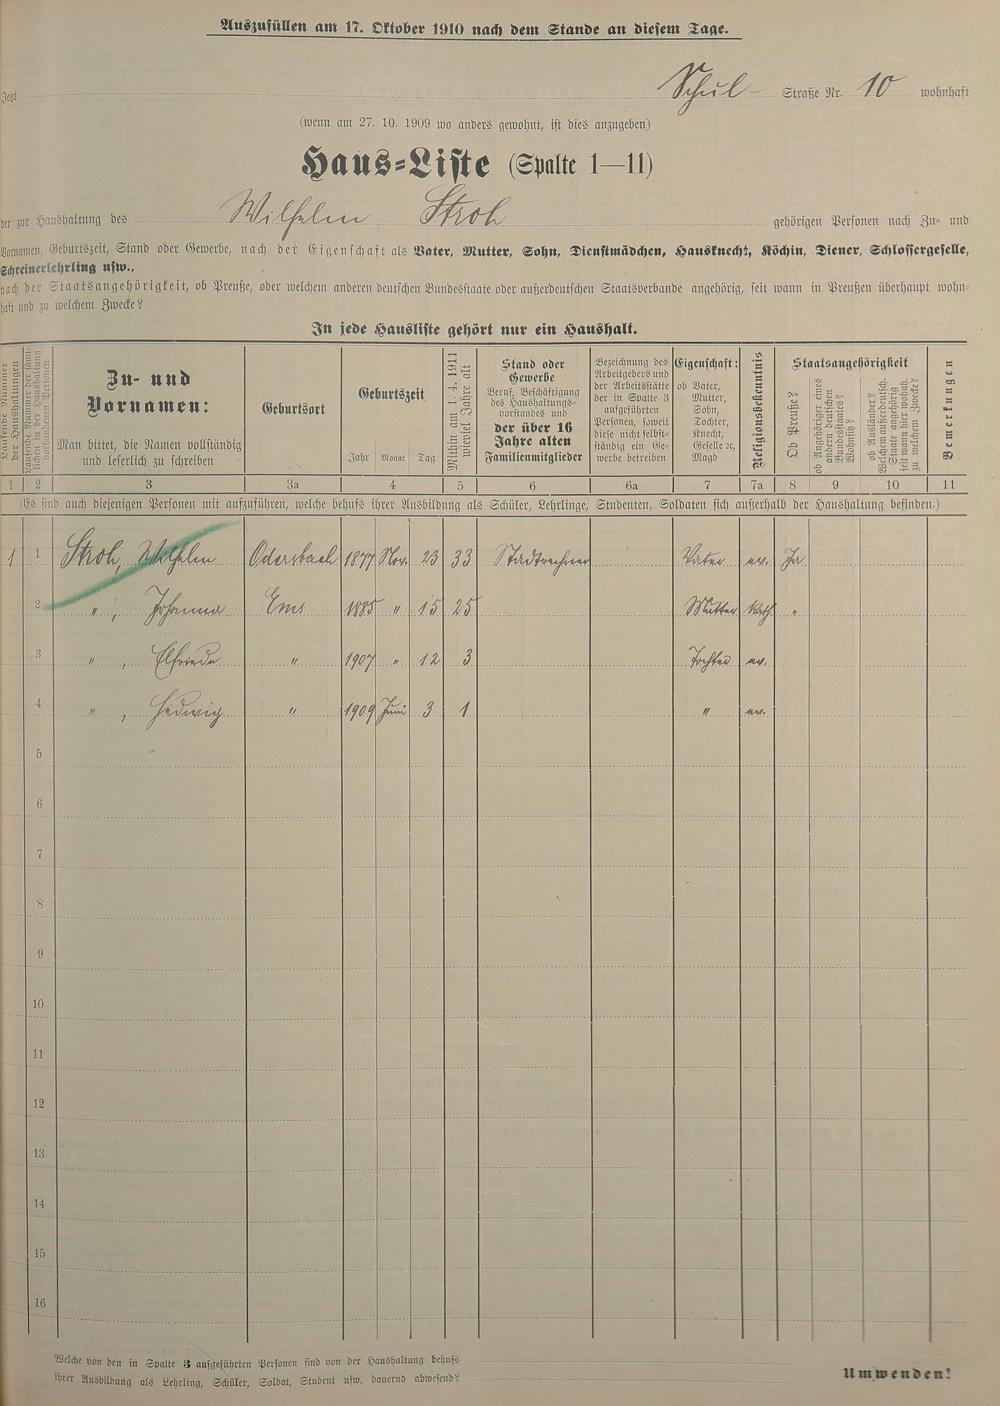 Auszufüllen am 17. Oktober 1910 nach dem Stande an diesem Tage.
Jetzt Schul- Straße Nr. 10 wohnhaft
(wenn am 27. 10. 1909 wo anders gewohnt, ist dies anzugeben)
Haus-Liste (Spalte 1—11)
der zur Haushaltung des Wilhelm Stroh gehörigen Personen nach Zu- und
Vornamen, Geburtszeit, Stand oder Gewerbe, nach der Eigenschaft als Vater, Mutter, Sohn, Dienstmädchen, Hausknecht, Köchin, Diener, Schlossergeselle,
Schreinerlehrling usw.,
nach der Staatsangehörigkeit, ob Preuße, oder welchem anderen deutschen Bundesstaate oder außerdeutschen Staatsverbande angehörig, seit wann in Preußen überhaupt wohn-
haft und zu welchem Zwecke?
In jede Hausliste gehört nur ein Haushalt.
Laufende Nummer
der Haushaltungen
Laufende Nummer der sämt-
lichen in der Haushaltung
vorhandenen Personen
Zu- und
Vornamen:
Man bittet, die Namen vollständig
und leserlich zu schreiben
Geburtsort
Geburtszeit
Jahr Monat Tag
Mithin am 1. 4. 1911
wieviel Jahre alt
Stand oder
Gewerbe
Beruf, Beschäftigung
des Haushaltungs-
vorstandes und
der über 16
Jahre alten
Familienmitglieder
Bezeichnung des
Arbeitgebers und
der Arbeitsstätte
der in Spalte 3
aufgeführten
Personen, soweit
diese nicht selbst-
ständig ein Ge-
werbe betreiben
Eigenschaft:
ob Vater,
Mutter,
Sohn,
Tochter,
Knecht,
Geselle ec,
Magd
Religionsbekenntnis
Staatsangehörigkeit
Ob Preuße?
ob Angehöriger eines
andern deutschen
Bundesstaates?
Wohnsitz?
ob Ausländer?
Welchem außerdeutsch.
Staate angehörig
seit wann hier wohnh.
zu welchem Zwecke?
Bemerkungen
1 2 3 3a 4 5 6 6a 7 7a 8 9 10 11
(Es sind auch diejenigen Personen mit aufzuführen, welche behufs ihrer Ausbildung als Schüler, Lehrlinge, Studenten, Soldaten sich außerhalb der Haushaltung befinden.)
1 1 Stroh, Wilhelm Odersbach 1877 Nov. 23 33 Stadtrechner Vater ev. Ja
2 " , Johanna Ems 1885 " 15 25 Mutter kath. "
3 " , Elfriede " 1907 " 12 3 Tochter ev.
4 " , Hedwig " 1909 Juni 3 1 " ev.
5
6
7
8
9
10
11
12
13
14
15
16
Welche von den in Spalte 3 aufgeführten Personen sind von der Haushaltung behufs
ihrer Ausbildung als Lehrling, Schüler, Soldat, Student usw. dauernd abwesend?
Umwenden!